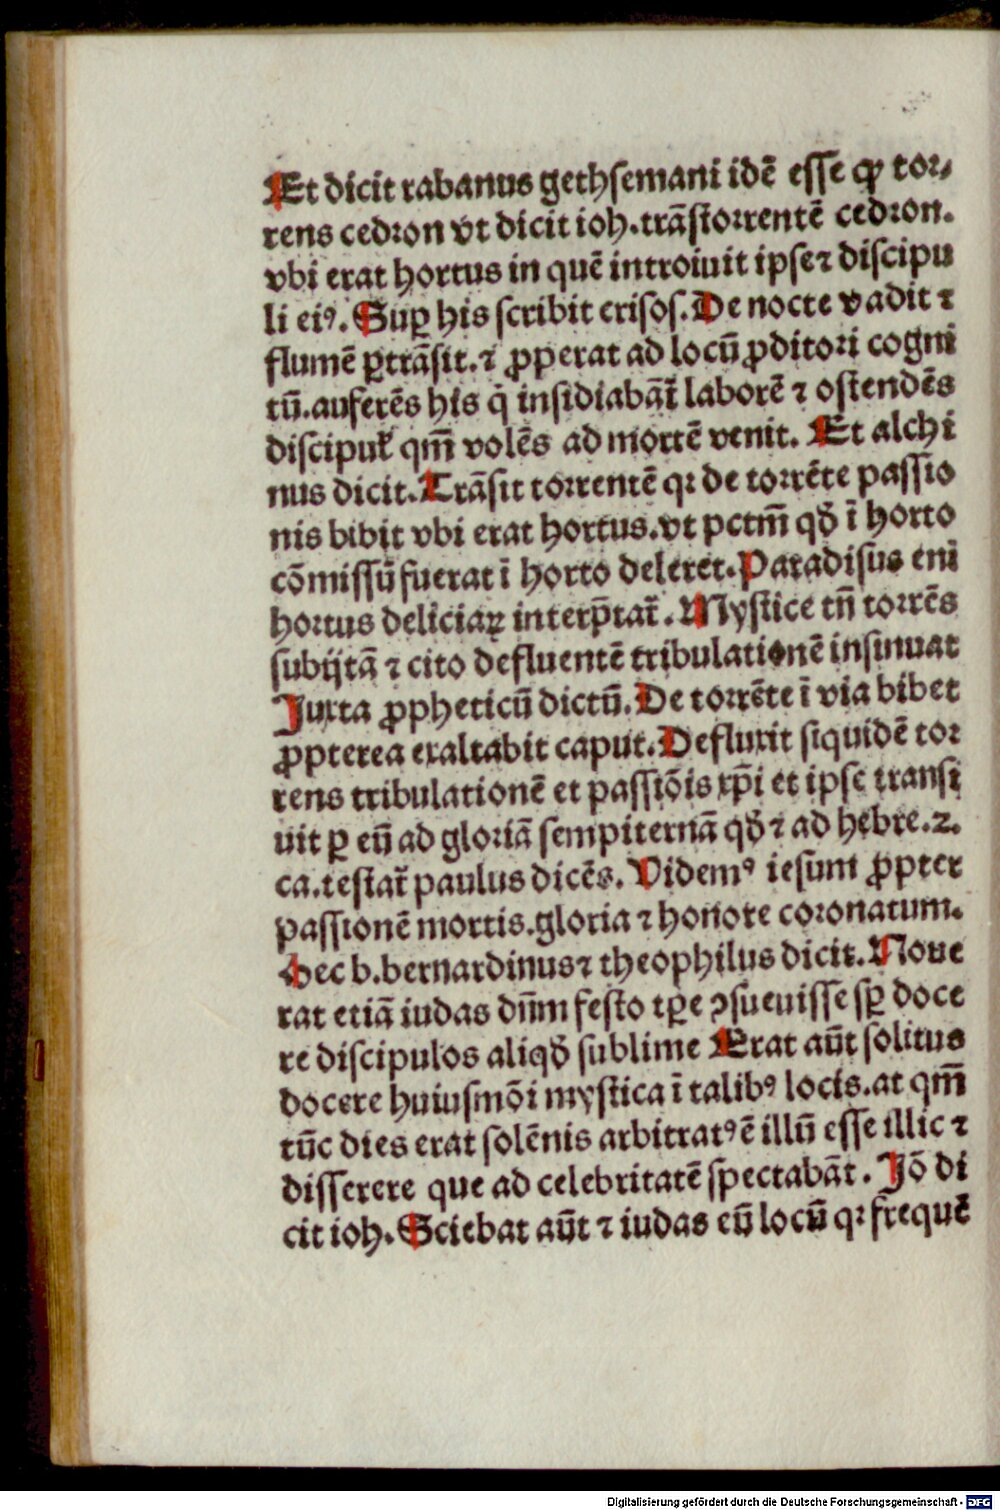 Et dicit rabanus gethsemani idē esse qꝫ tor⸗
rens cedron vt dicit ioh.trāstorrentē cedron.
vbi erat hortus in quē introiuit ipse⁊ discipu
li eiꝰ. Suꝑ his scribit crisos. De nocte vadit ⁊
flumē ꝑtrāsit.⁊ ꝓperat ad locū ꝓditori cogni
tū.auferēs his q̄ insidiabāt̄ laborē ⁊ ostendēs
discipul̛ qm̄ volēs ad mortē venit. Et alchi
nus dicit. Trāsit torrentē qꝛ de torrēte passio
nis bibit vbi erat hortus.vt pctm̄ qđ ī horto
cōmissū fuerat ī horto deleret. Paradisus enī
hortus deliciaꝝ interp̄tat̄. Mystice tn̄ torrēs
subijtā ⁊ cito defluentē tribulationē insinuat
Juxta ꝓpheticū dictū. De torrēte ī via bibet
ꝓpterea exaltabit caput. Defluxit siquidē tor
rens tribulationē et passiōis xp̄i et ipse transi
uit ꝑ eū ad gloriā sempiternā qđ ⁊ ad hebre.2.
ca.testat̄ paulus dicēs. Videmꝰ iesum ꝓpter
passionē mortis.gloria ⁊ honore coronatum.
Hec b.bernardinus⁊ theophilus dicit. Noue
rat etiā iudas dn̄m festo tꝑe ꝯsueuisse sꝑ doce
re discipulos aliqđ sublime Erat aūt solitus
docere huiusmōi mystica ī talibꝰ locis.at qm̄
tūc dies erat solēnis arbitratꝰ ē illū esse illic ⁊
disserere que ad celebritatē spectabāt. Jō di
cit ioh. Sciebat aūt ⁊ iudas eū locū qꝛ frequē
Digitalisierung gefördert durch die Deutsche Forschungsgemeinschaft - DFG